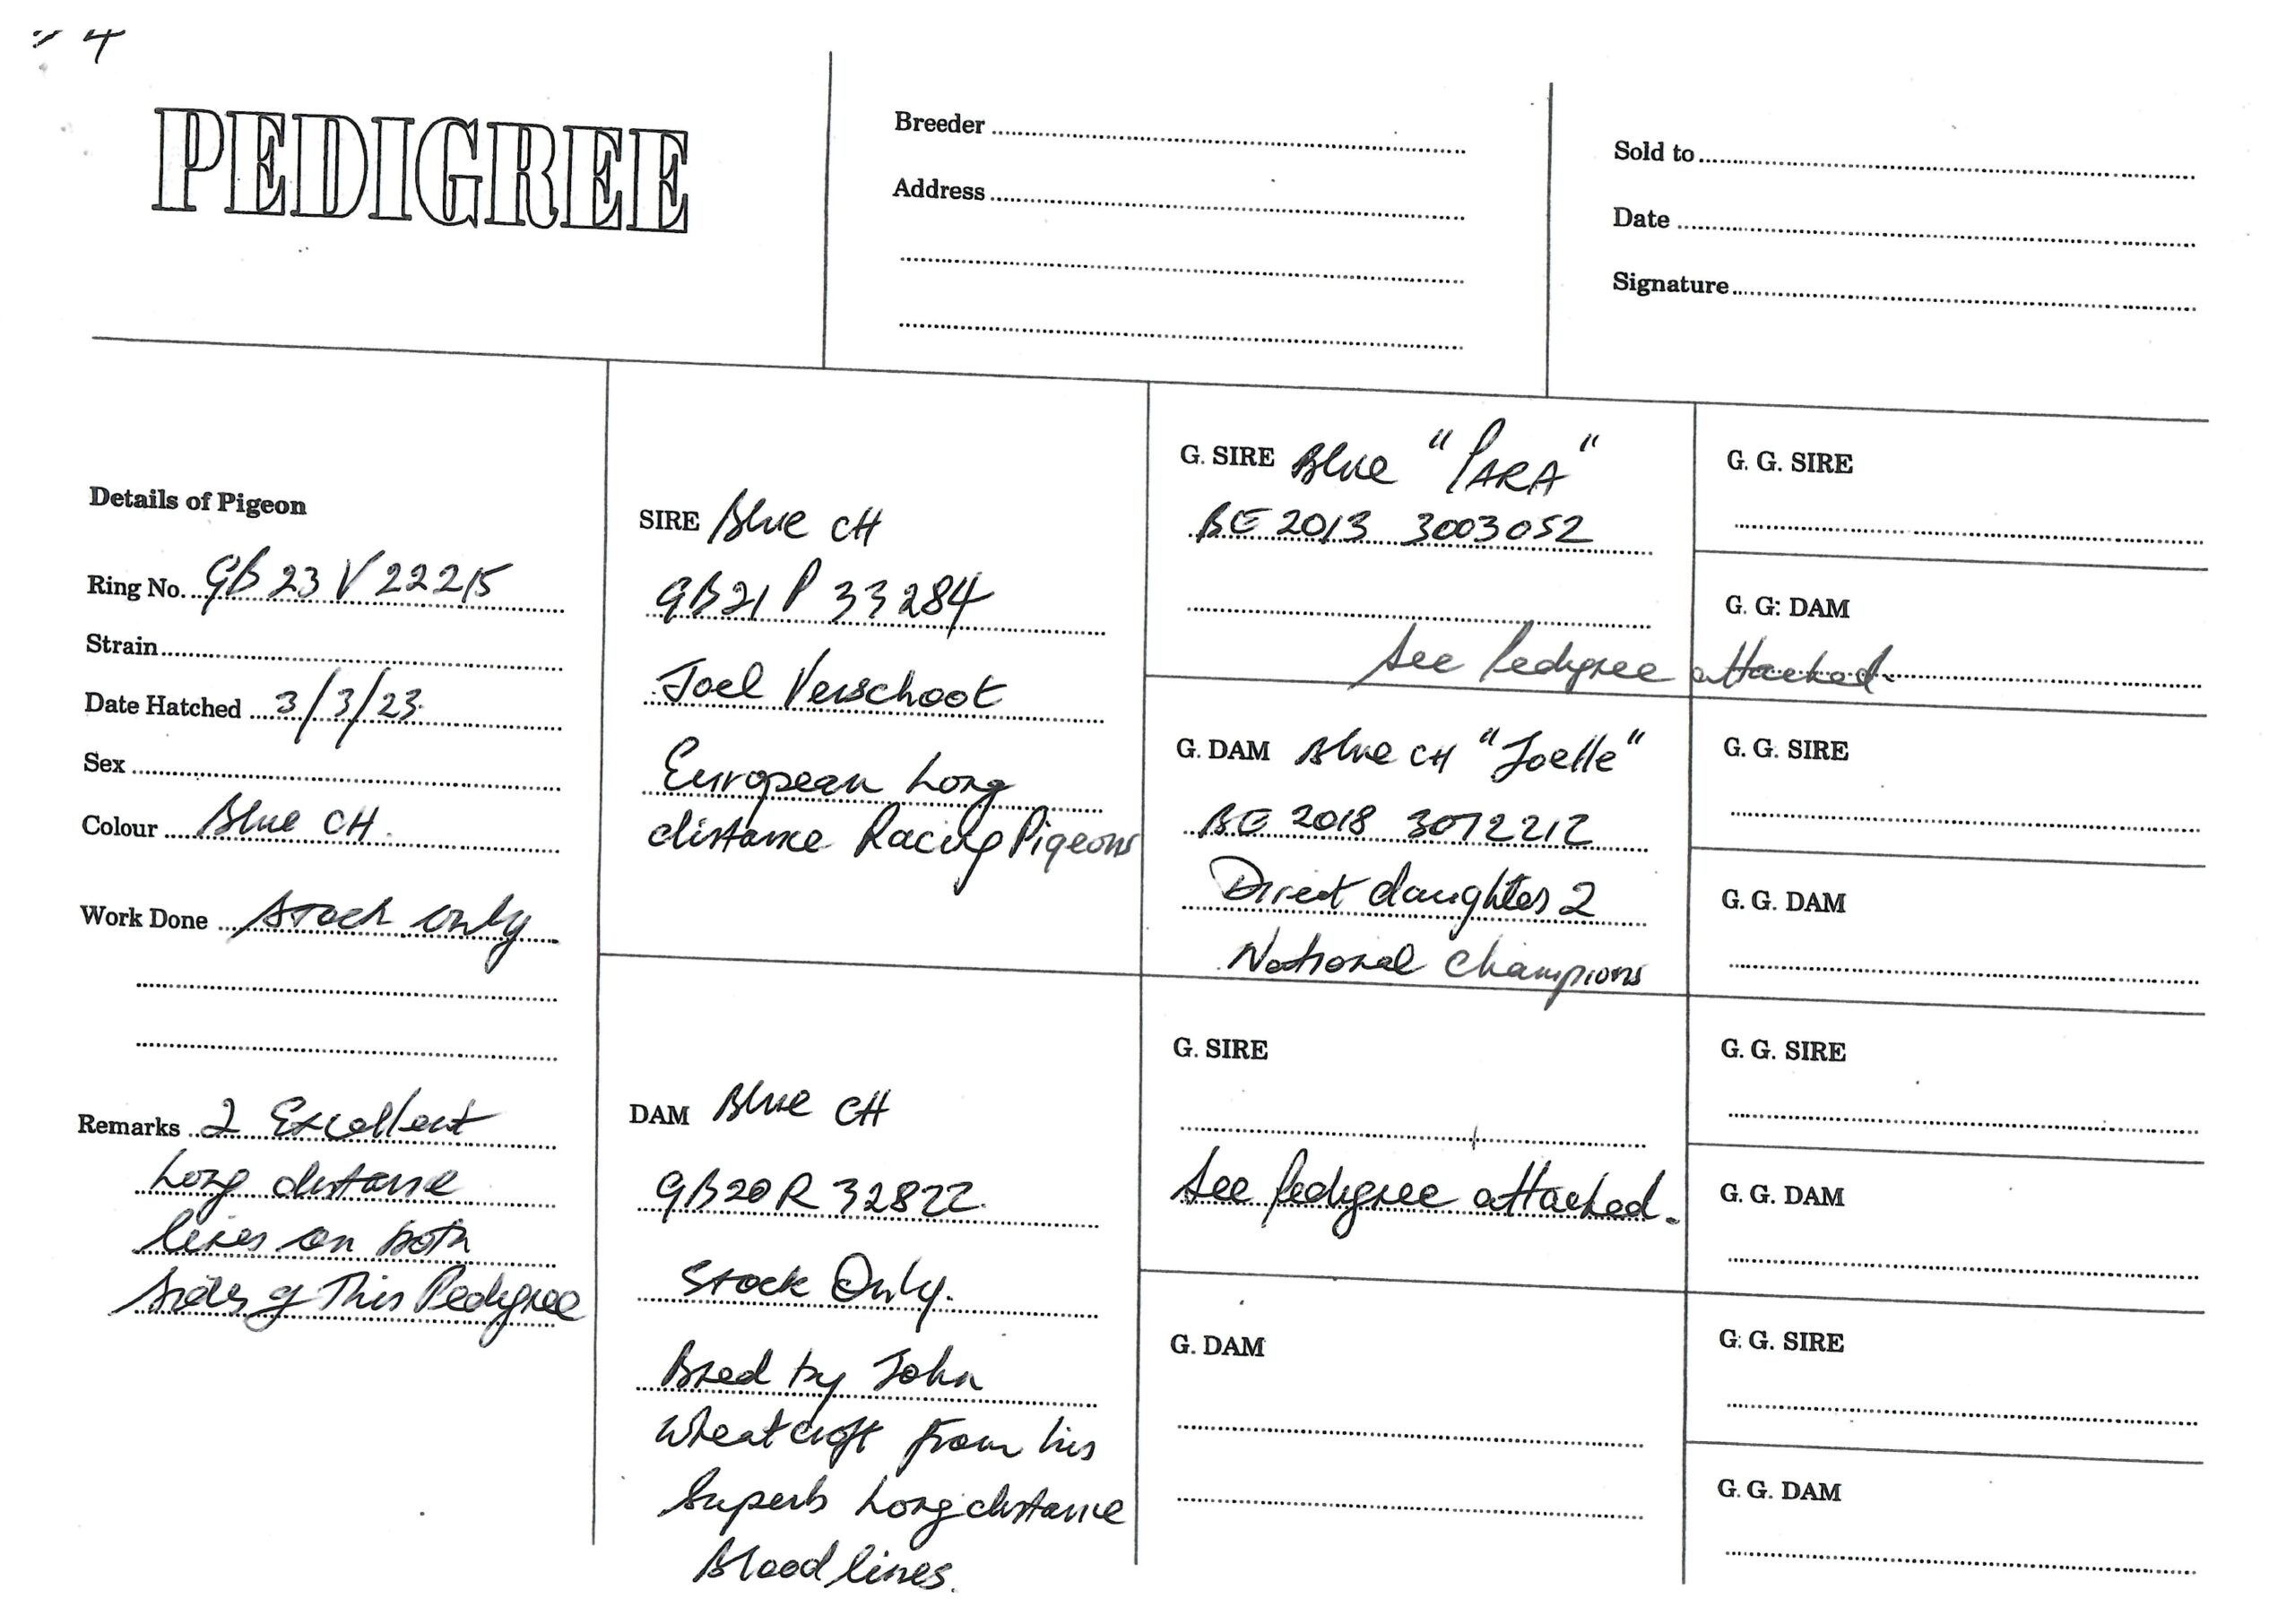 4
PEDIGREE
Breeder
Address
Sold to
Date
Signature
Details of Pigeon
Ring No. GB 23 V 22215
Strain
Date Hatched 3/3/23
Sex
Colour Blue CH
Work Done Stock only
Remarks 2 Excellent
Long distance
lines on both
sides of This Pedigree
SIRE Blue CH
GB21 P 33284
Joel Verschoot
European Long
distance Racing Pigeons
DAM Blue CH
GB20 R 32822
Stock Only.
Bred by John
Wheatcroft from his
Superb Long distance
Bloodlines.
G. SIRE Blue "PARA"
BE 2013 3003052
See Pedigree attached.
G. DAM Blue CH "Joelle"
BE 2018 3072212
Direct daughter 2
National Champions
G. SIRE
See Pedigree attached.
G. DAM
G. G. SIRE
G. G: DAM
G. G. SIRE
G. G. DAM
G. G. SIRE
G. G. DAM
G. G. SIRE
G. G. DAM